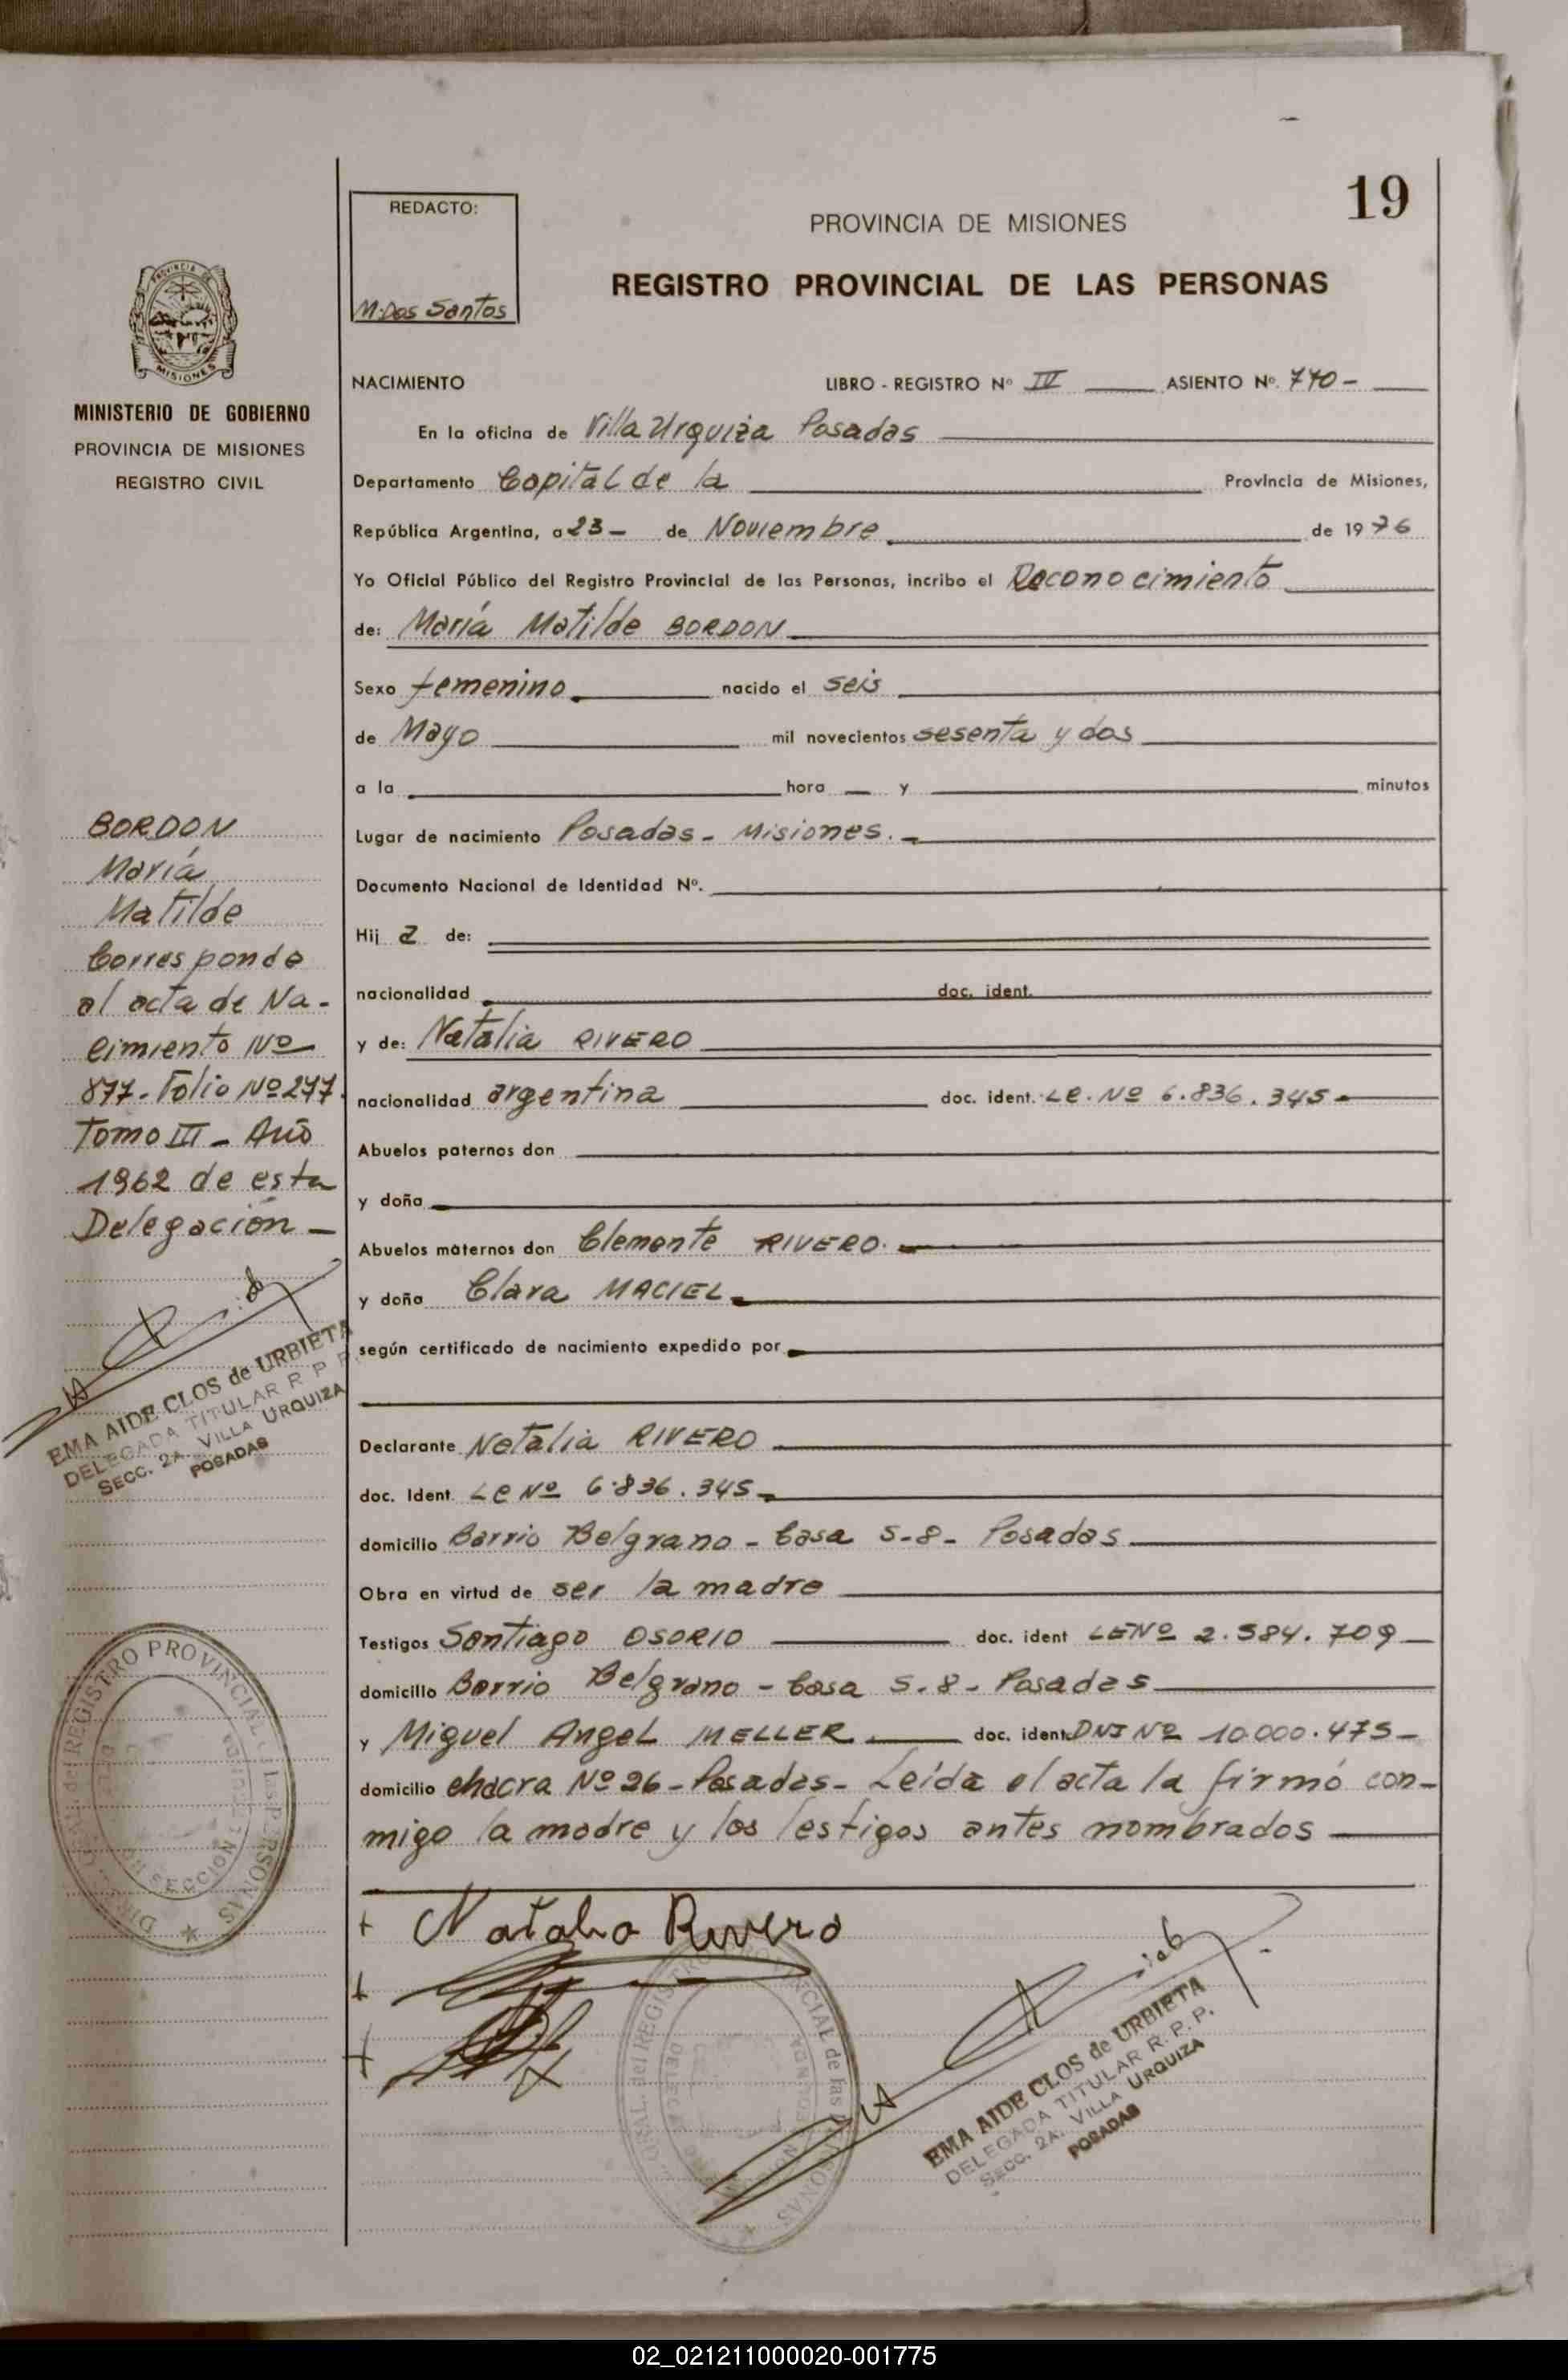 19
REDACTO:
M. Dos Santos
PROVINCIA DE MISIONES
REGISTRO PROVINCIAL DE LAS PERSONAS
PROVINCIA DE
MISIONES
MINISTERIO DE GOBIERNO
PROVINCIA DE MISIONES
REGISTRO CIVIL
NACIMIENTO LIBRO - REGISTRO Nº IV ASIENTO Nº. 740 -
En la oficina de Villa Urquiza Posadas
Departamento Capital de la Provincia de Misiones,
República Argentina, a 23 - de Noviembre de 1976
Yo Oficial Público del Registro Provincial de las Personas, incribo el Reconocimiento
de: María Matilde BORDON
Sexo femenino nacido el seis
de Mayo mil novecientos sesenta y dos
a la hora y minutos
Lugar de nacimiento Posadas - Misiones. -
Documento Nacional de Identidad Nº.
Hij a de:
nacionalidad doc. ident.
y de: Natalia RIVERO
nacionalidad argentina doc. ident. LC. Nº 6.836.345 -
Abuelos paternos don
y doña
Abuelos maternos don Clemente RIVERO. -
y doña Clara MACIEL -
según certificado de nacimiento expedido por
Declarante Natalia RIVERO
doc. Ident. LC Nº 6.836.345 -
domicilio Barrio Belgrano - Casa S-8 - Posadas
Obra en virtud de ser la madre
Testigos Santiago OSORIO doc. ident LE Nº 2.584.709 -
domicilio Barrio Belgrano - Casa S.8 - Posadas
y Miguel Angel MELLER doc. ident. DNI Nº 10.000.475 -
domicilio chacra Nº 26 - Posadas - Leída el acta la firmó con-
migo la madre y los testigos antes nombrados
Natalia Rivero
EMA AIDE CLOS de URBIETA
DELEGADA TITULAR R. P. P.
SECC. 2A. VILLA URQUIZA
POSADAS
BORDON
María
Matilde
Corresponde
al acta de Na-
cimiento Nº
877 - Folio Nº 277.
Tomo III - Año
1962 de esta
Delegación -
EMA AIDE CLOS de URBIETA
DELEGADA TITULAR R P P.
SECC. 2A VILLA URQUIZA
POSADAS
del REGISTRO PROVINCIAL de las PERSONAS
SECCION
del REGISTRO PROVINCIAL de las PERSONAS
02_021211000020-001775